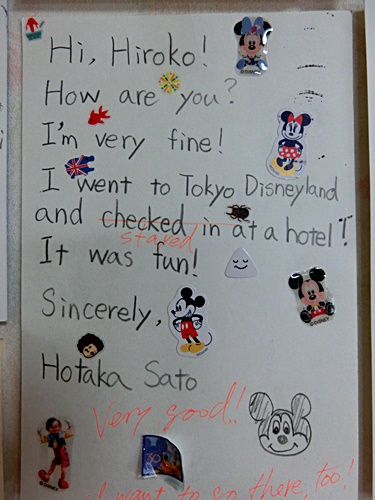 Hi, Hiroko!
How are you?
I'm very fine!
I went to Tokyo Disneyland
and checked in at a hotel!
stayed
It was fun!
Sincerely,
Hotaka Sato
Very good!!
I want to go there, too!